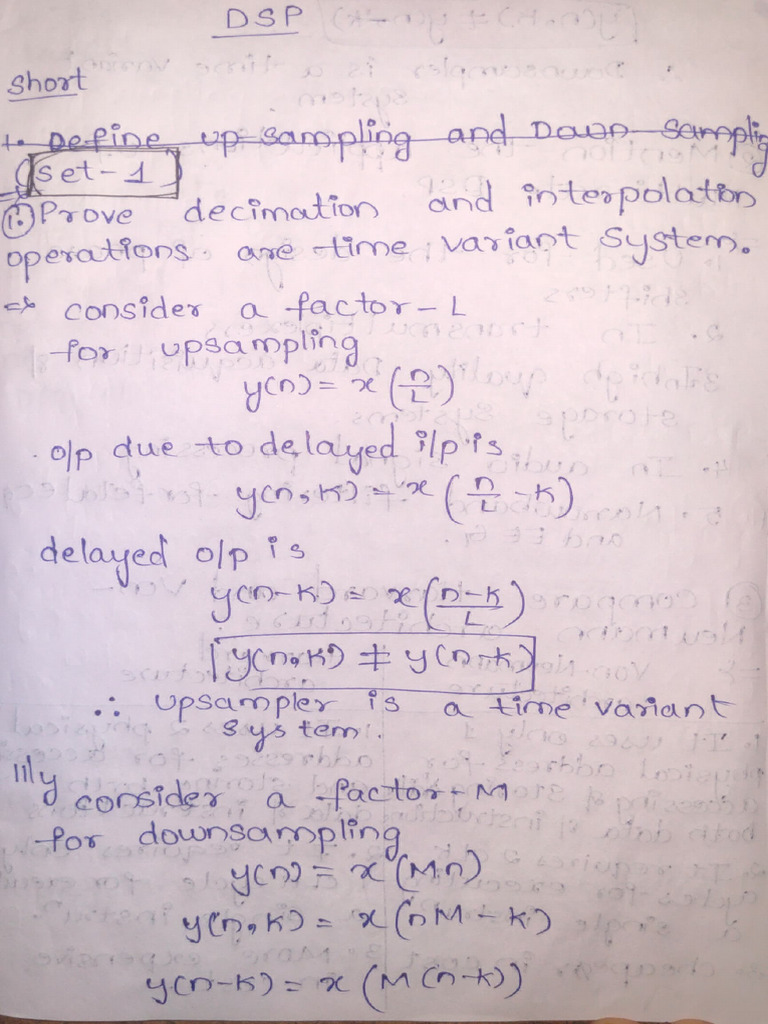 DSP
Short
1. Define up sampling and Down sampling
Set-1
1. Prove decimation and interpolation
operations are time variant System.
=> consider a factor-L
for upsampling
y(n) = x(n/L)
o/p due to delayed i/p is
y(n,k) = x(n/L - k)
delayed o/p is
y(n-k) = x((n-k)/L)
y(n,k) ≠ y(n-k)
∴ upsampler is a time variant
system.
111ly
consider a factor-M
for downsampling
y(n) = x(Mn)
y(n,k) = x(nM-k)
y(n-k) = x(M(n-k))